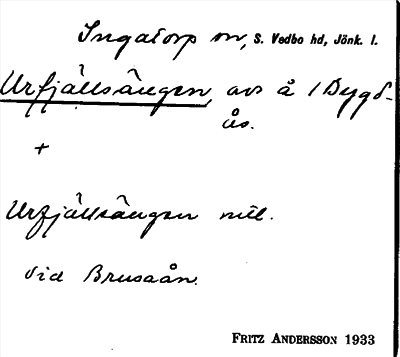 Ingatorp sn, S. Vedbo hd, Jönk. l.
Urfjällsängen, avs å 1 Bygd-
ås.
+
Urfjällsängen
Vid Brusaån.
FRITZ ANDERSSON 1933